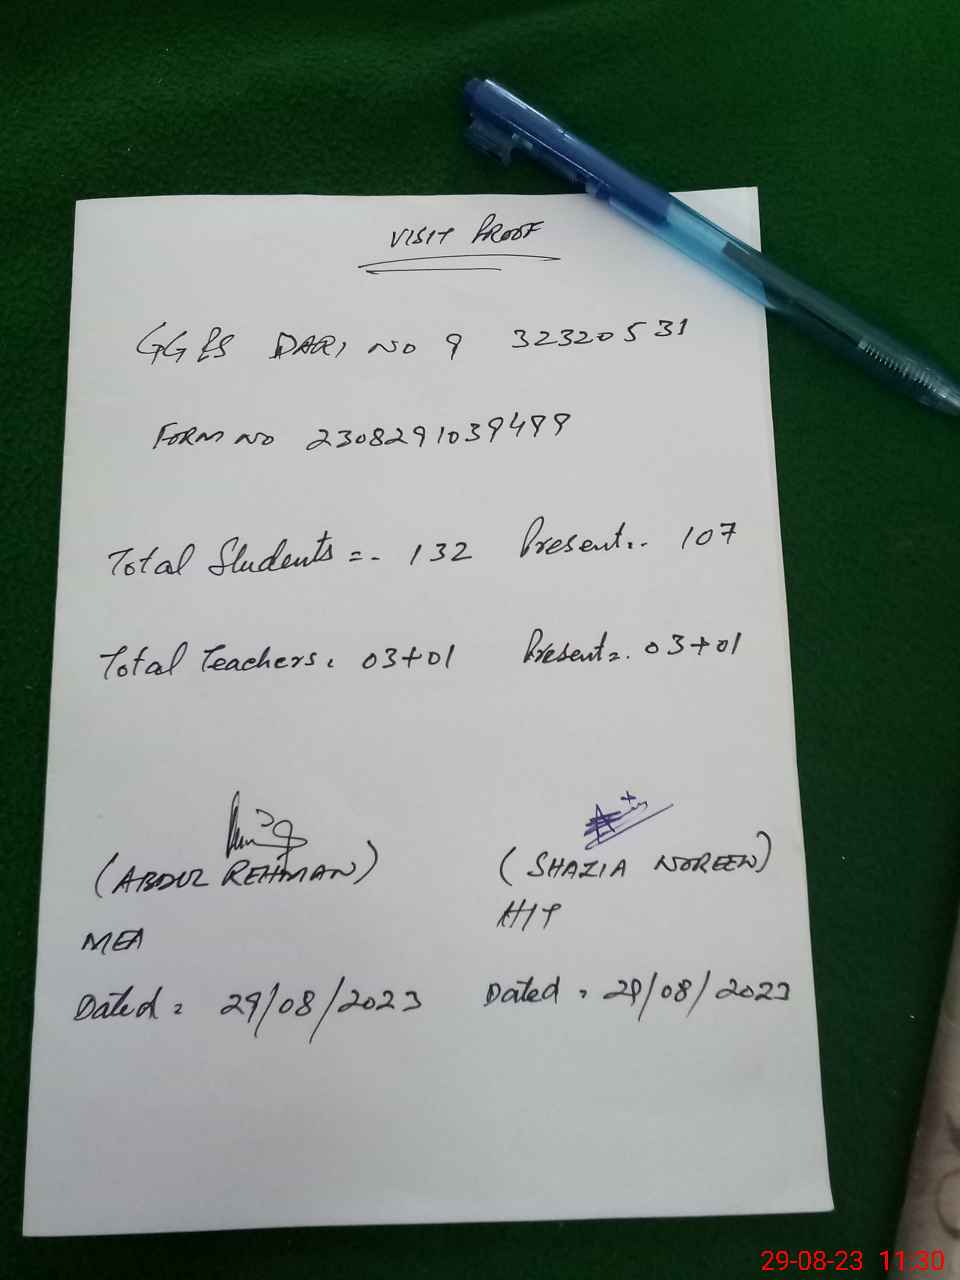 VISIT PROOF
GGES DARI NO 9 32320531
FORM NO 2308291039499
Total Students =- 132 Present:- 107
Total Teachers: 03+01 Present=. 03+01
(ABDUL REHMAN) (SHAZIA NOREEN)
MEA
Dated = 29/08/2023 Dated = 29/08/2023
29-08-23 11:30